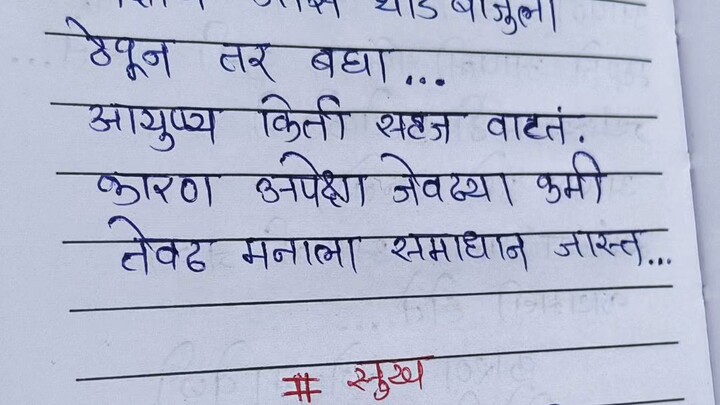 थोडं बाजुला
ठेवून तर बघा...
आयुष्य किती सहज वाटतं.
कारण अपेक्षा जेवढ्या कमी
तेवढ मनाला समाधान जास्त...
# सुख